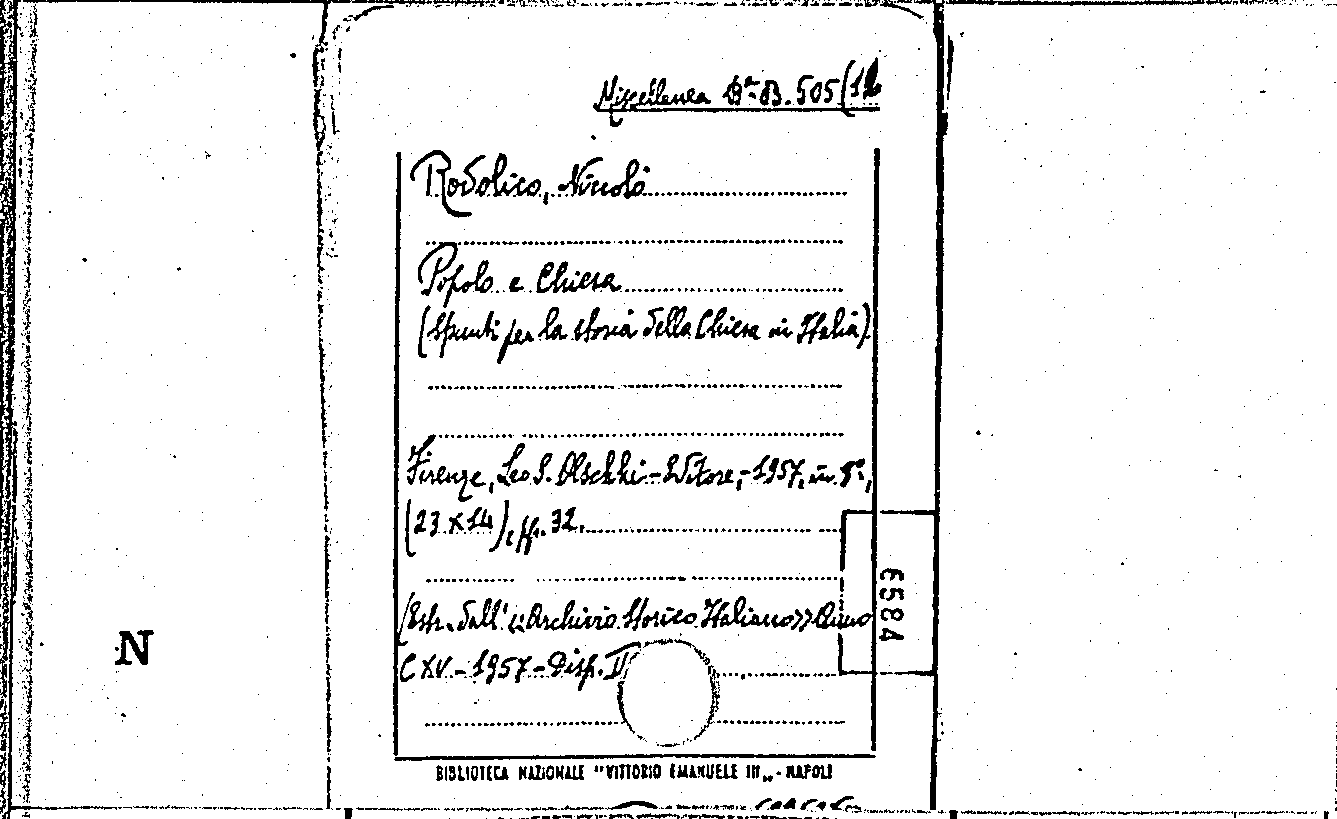 Miscellanea Bª B. 505 (12
Rodolico, Niccolò
Popolo e Chiesa
(Spunti per la storia della Chiesa in Italia)
Firenze, Leo S. Olschki - Editore, - 1957, in 8º,
(23 X 14), pp. 32.
(Estr. dall' «Archivio Storico Italiano» Anno
CXV - 1957 - Disp. II
6584
N
BIBLIOTECA NAZIONALE "VITTORIO EMANUELE III„ - NAPOLI